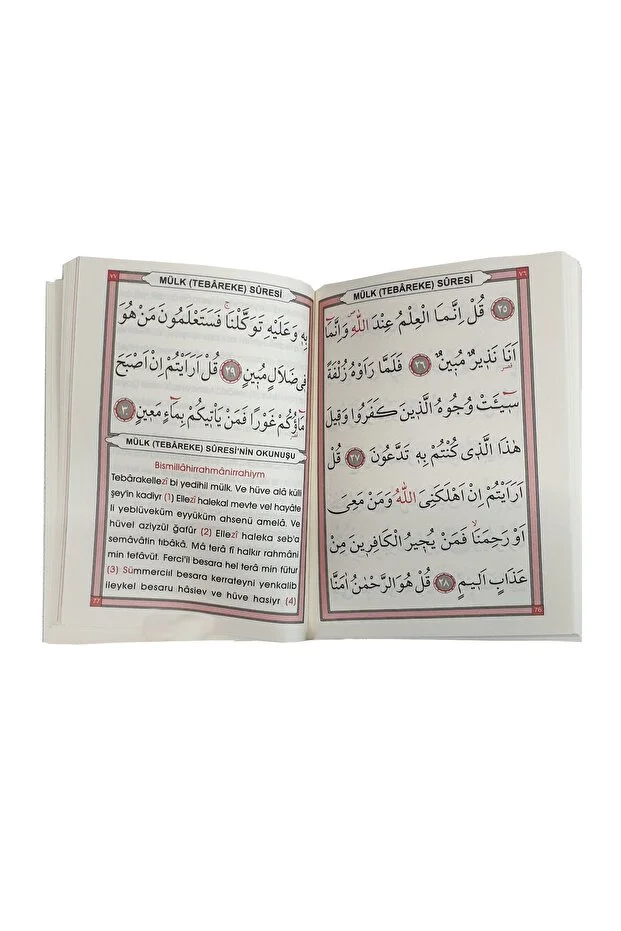 ٧٦
MÜLK (TEBÂREKE) SÛRESİ
٢٥ قُلْ اِنَّمَا الْعِلْمُ عِنْدَ اللّٰهِ وَاِنَّمَٓا
اَنَا۬ نَذٖيرٌ مُبٖينٌ ٢٦ فَلَمَّا رَاَوْهُ زُلْفَةً
سٖٓيـَٔتْ وُجُوهُ الَّذٖينَ كَفَرُوا وَقٖيلَ
هٰذَا الَّذٖي كُنْتُمْ بِهٖ تَدَّعُونَ ٢٧ قُلْ
اَرَاَيْتُمْ اِنْ اَهْلَكَنِيَ اللّٰهُ وَمَنْ مَعِيَ
اَوْ رَحِمَنَاۙ فَمَنْ يُجٖيرُ الْكَافِرٖينَ مِنْ
عَذَابٍ اَلٖيمٍ ٢٨ قُلْ هُوَ الرَّحْمٰنُ اٰمَنَّا
76
٧٧
MÜLK (TEBÂREKE) SÛRESİ
بِهٖ وَعَلَيْهِ تَوَكَّلْنَاۚ فَسَتَعْلَمُونَ مَنْ هُوَ
فٖي ضَلَالٍ مُبٖينٍ ٢٩ قُلْ اَرَاَيْتُمْ اِنْ اَصْبَحَ
مَٓاؤُ۬كُمْ غَوْرًا فَمَنْ يَأْتٖيكُمْ بِمَٓاءٍ مَعٖينٍ ٣٠
MÜLK (TEBÂREKE) SÛRESİ'NİN OKUNUŞU
Bismillâhirrahmânirrahiym
Tebârakellezî bi yedihil mülk. Ve hüve alâ külli
şey'in kadiyr (1) Ellezî halekal mevte vel hayâte
li yeblüveküm eyyüküm ahsenü amelâ. Ve
hüvel aziyzül ğafûr (2) Ellezî haleka seb'a
semâvâtin tıbâkâ. Mâ terâ fî halkır rahmâni
min tefâvüt. Ferci'il besara hel terâ min fütur
(3) Sümmerciıl besara kerrateyni yenkalib
ileykel besaru hâsiev ve hüve hasiyr (4)
77